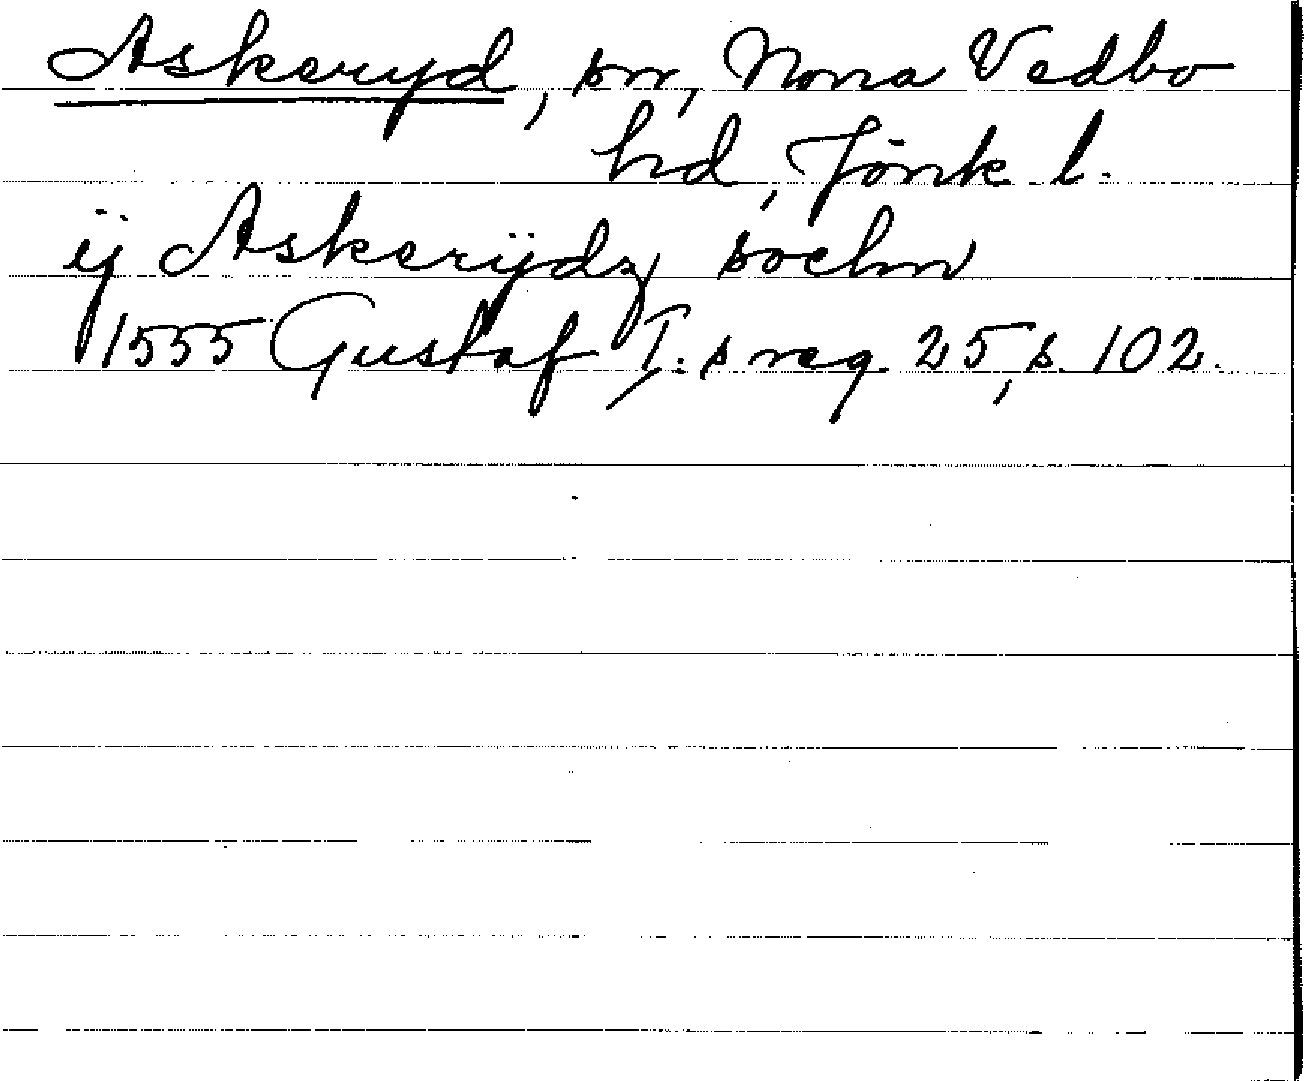 Askeryd, sn, Norra Vedbo
hd, Jönk l.
ij Askerÿdz sochn
1555 Gustaf I:s reg. 25, s. 102.